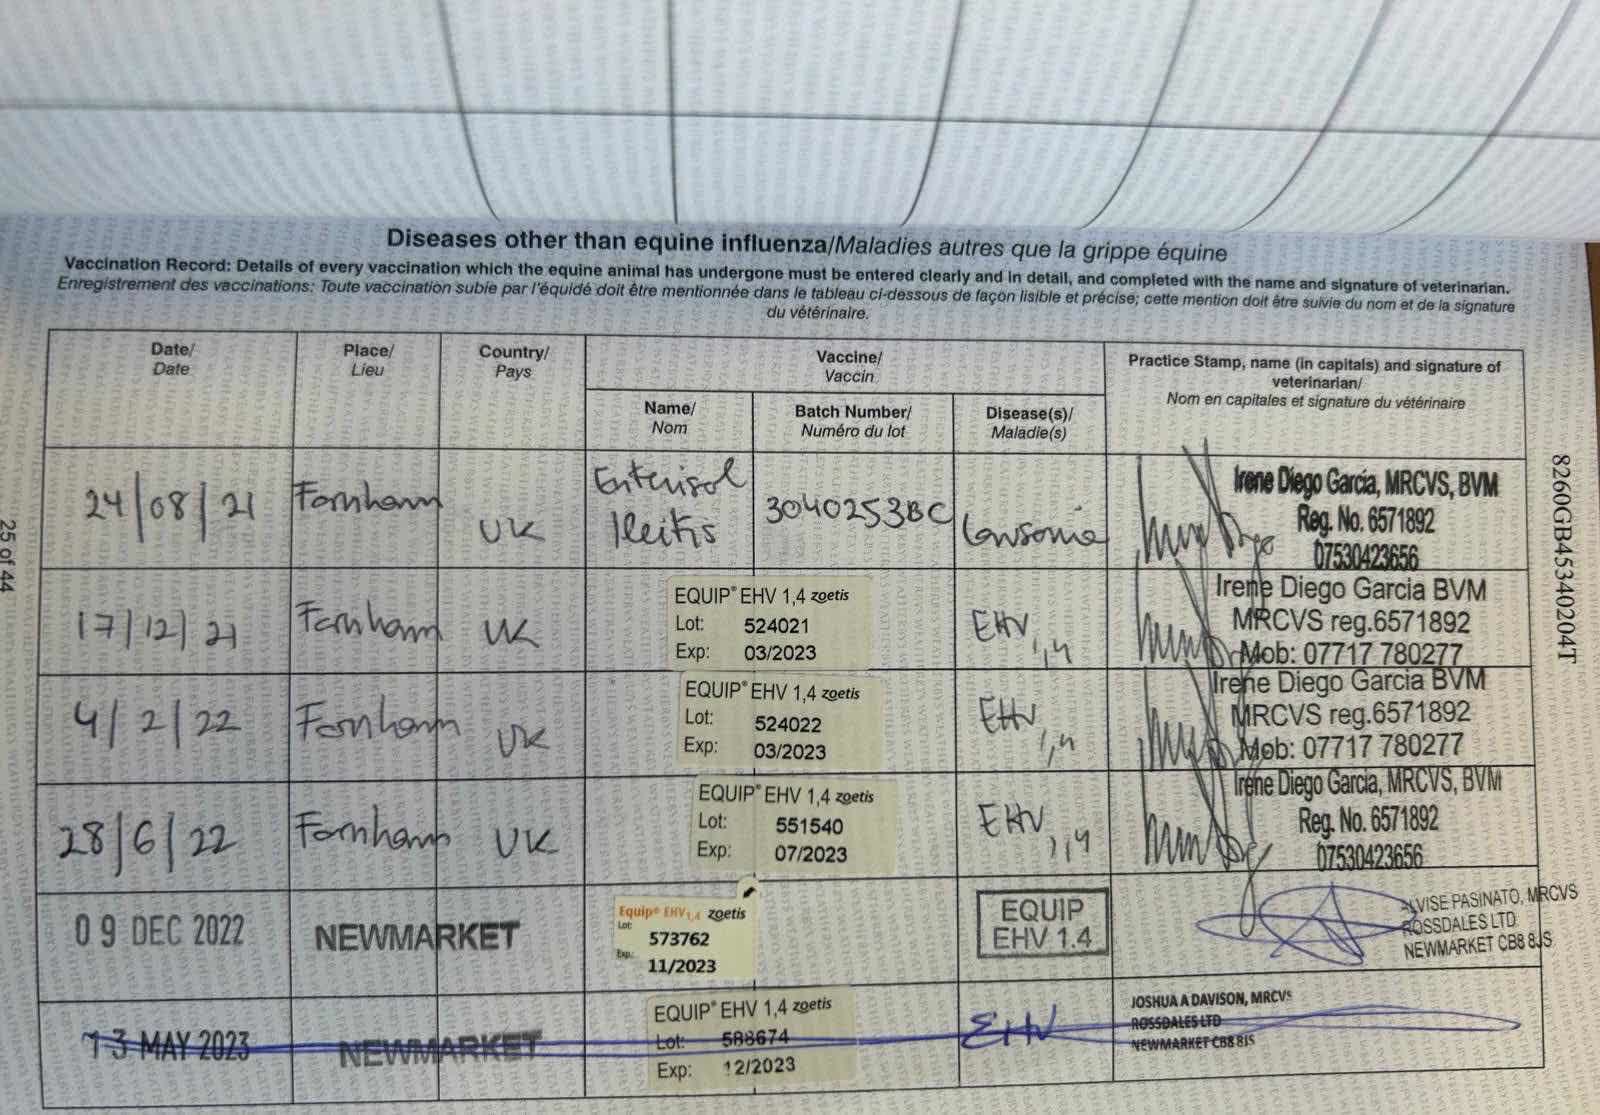 Diseases other than equine influenza/Maladies autres que la grippe équine
Vaccination Record: Details of every vaccination which the equine animal has undergone must be entered clearly and in detail, and completed with the name and signature of veterinarian.
Enregistrement des vaccinations: Toute vaccination subie par l'équidé doit être mentionnée dans le tableau ci-dessous de façon lisible et précise; cette mention doit être suivie du nom et de la signature
du vétérinaire.
Date/
Date
Place/
Lieu
Country/
Pays
Vaccine/
Vaccin
Name/
Nom
Batch Number/
Numéro du lot
Disease(s)/
Maladie(s)
Practice Stamp, name (in capitals) and signature of
veterinarian/
Nom en capitales et signature du vétérinaire
24/08/21
Farnham
UK
Enterisol
Ileitis
3040253BC
Lawsonia
Irene Diego Garcia, MRCVS, BVM
Reg. No. 6571892
07530423656
17/12/21
Farnham
UK
EQUIP® EHV 1,4 zoetis
Lot: 524021
Exp: 03/2023
EHV 1,4
Irene Diego Garcia BVM
MRCVS reg.6571892
Mob: 07717 780277
4/2/22
Farnham
UK
EQUIP® EHV 1,4 zoetis
Lot: 524022
Exp: 03/2023
EHV 1,4
Irene Diego Garcia BVM
MRCVS reg.6571892
Mob: 07717 780277
28/6/22
Farnham
UK
EQUIP® EHV 1,4 zoetis
Lot: 551540
Exp: 07/2023
EHV 1,4
Irene Diego Garcia, MRCVS, BVM
Reg. No. 6571892
07530423656
09 DEC 2022
NEWMARKET
Equip® EHV 1,4 zoetis
Lot: 573762
Exp: 11/2023
EQUIP
EHV 1.4
ALVISE PASINATO, MRCVS
ROSSDALES LTD
NEWMARKET CB8 8JS
13 MAY 2023
NEWMARKET
EQUIP® EHV 1,4 zoetis
Lot: 588674
Exp: 12/2023
EHV
JOSHUA A DAVISON, MRCVS
ROSSDALES LTD
NEWMARKET CB8 8JS
25 of 44
8260GB45340204T